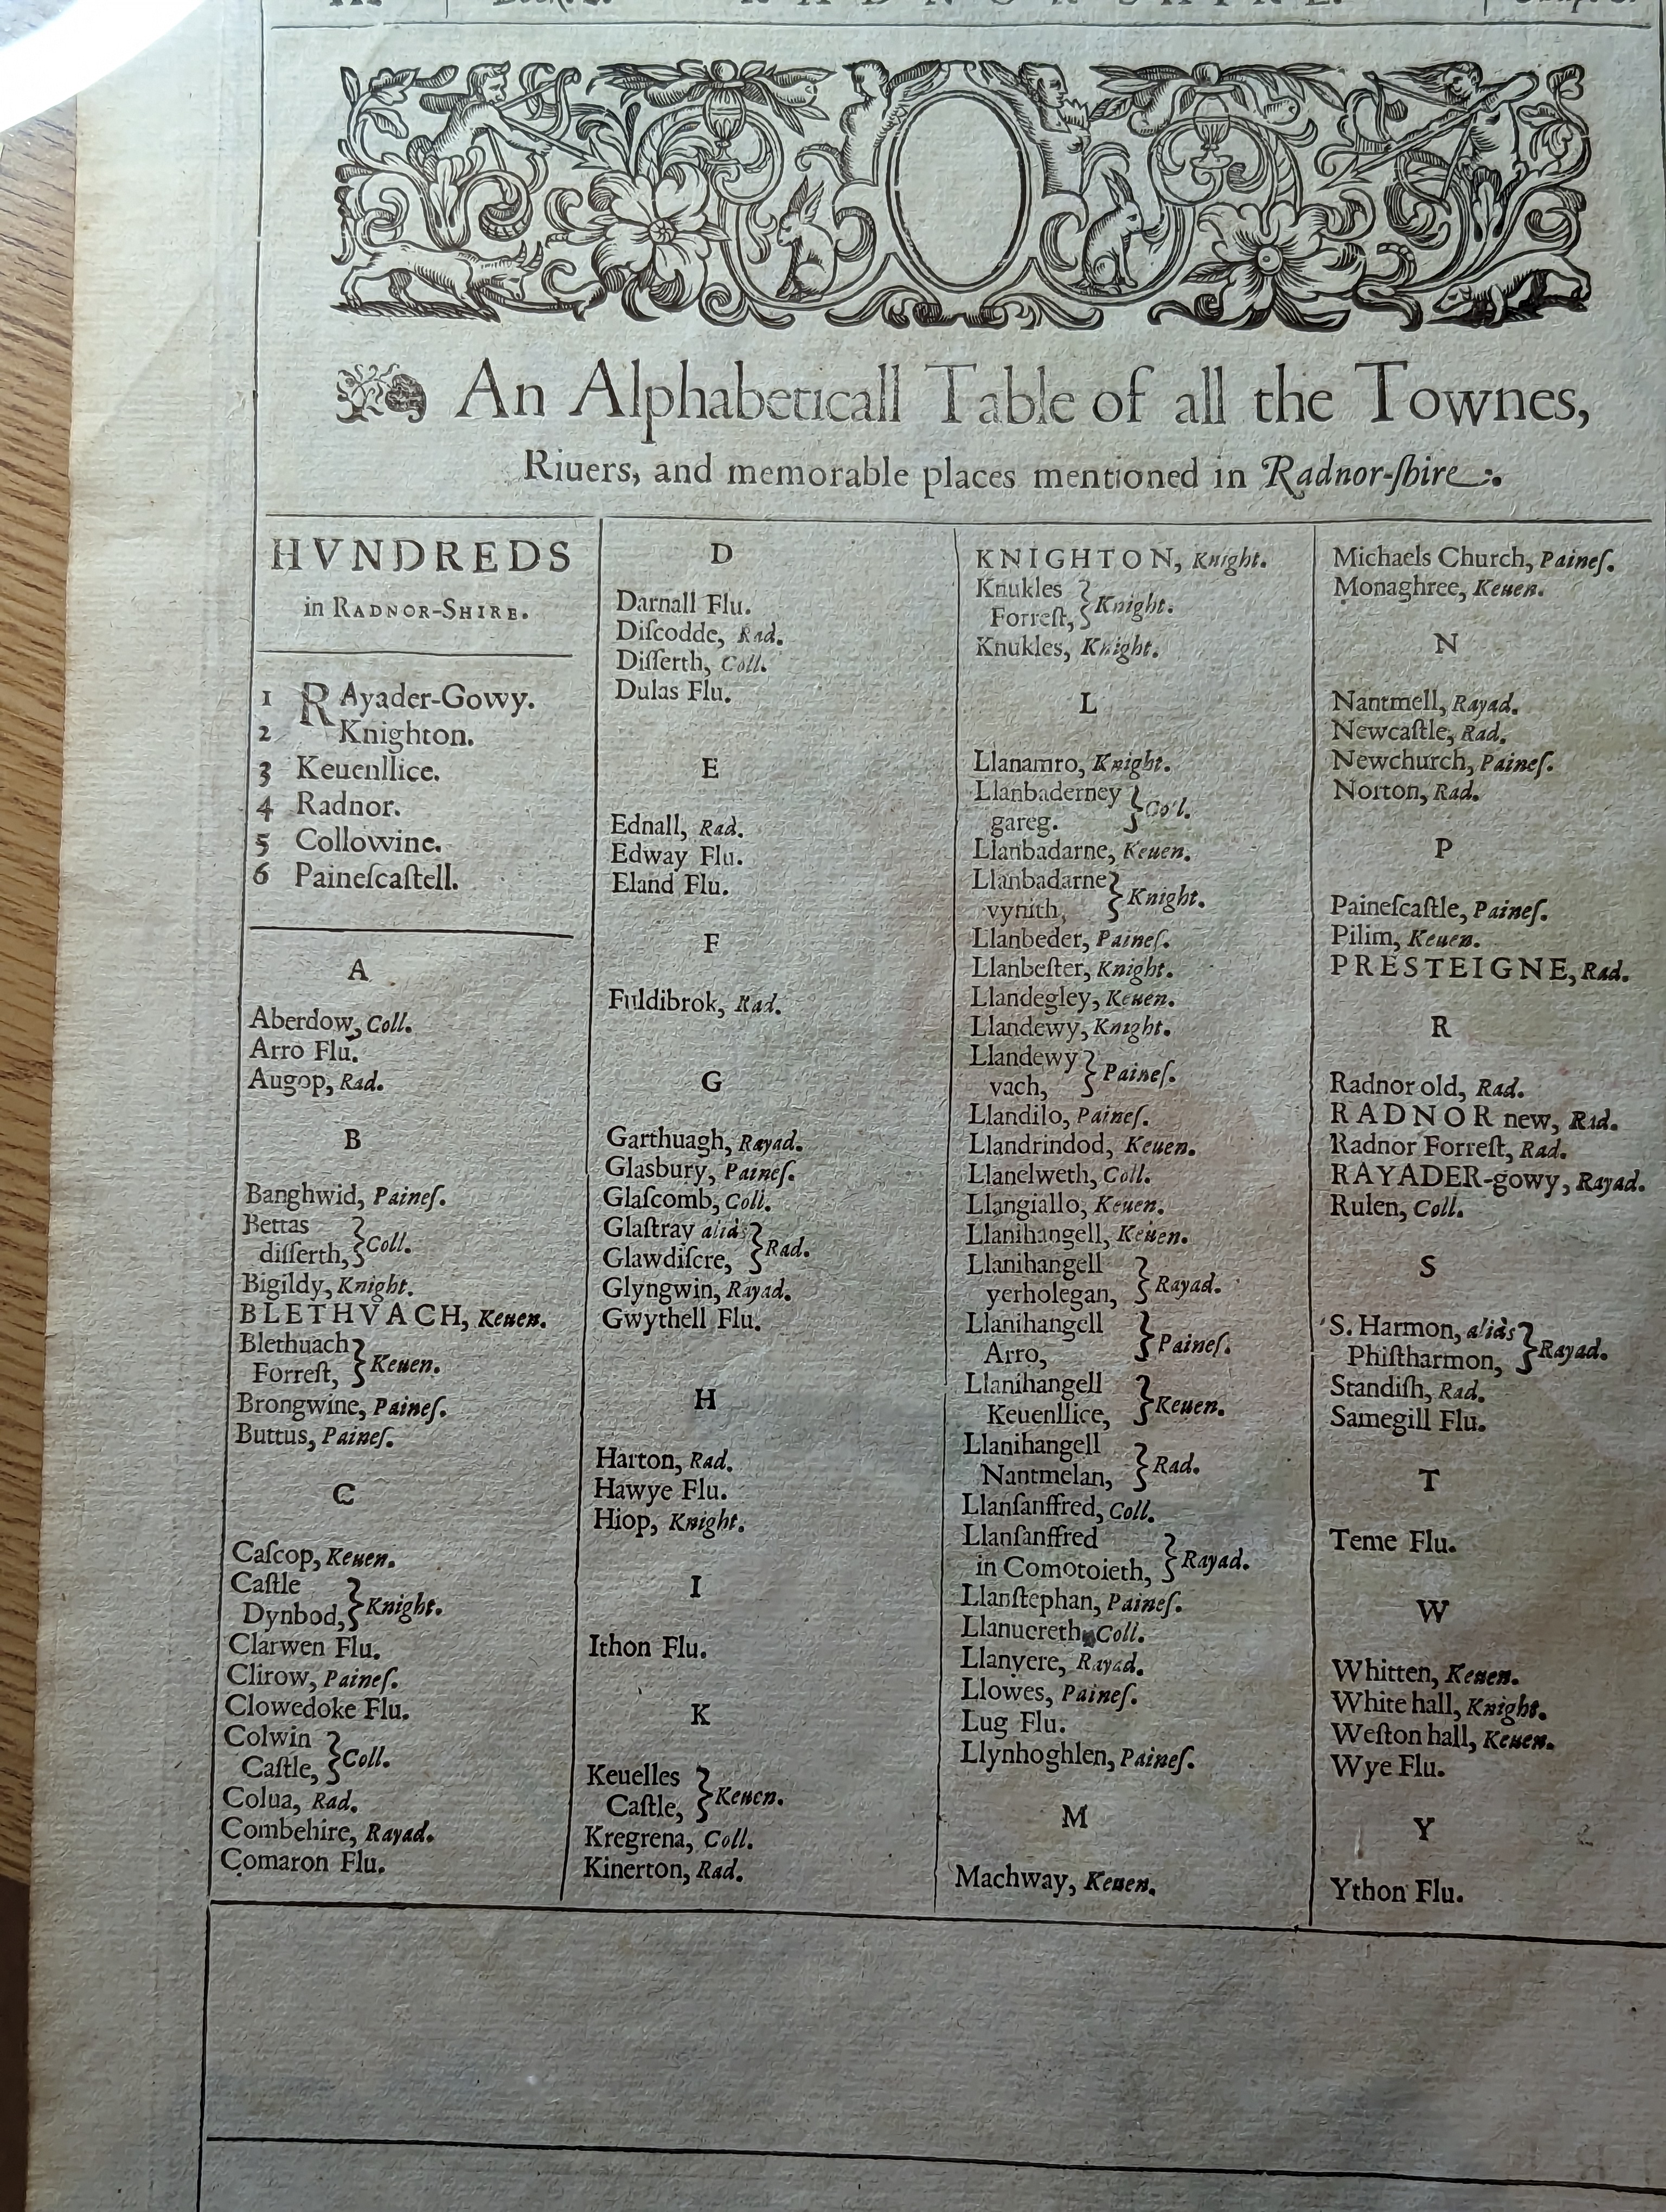 RADNOR SHIRE.
An Alphabeticall Table of all the Townes,
Riuers, and memorable places mentioned in Radnor-ſhire.
HVNDREDS
in RADNOR-SHIRE.
1 RAyader-Gowy.
2 Knighton.
3 Keuenllice.
4 Radnor.
5 Collowine.
6 Paineſcaſtell.
A
Aberdow, Coll.
Arro Flu.
Augop, Rad.
B
Banghwid, Paineſ.
Bettas
diſſerth, } Coll.
Bigildy, Knight.
BLETHVACH, Keuen.
Blethuach
Forreſt, } Keuen.
Brongwine, Paineſ.
Buttus, Paineſ.
C
Caſcop, Keuen.
Caſtle
Dynbod, } Knight.
Clarwen Flu.
Clirow, Paineſ.
Clowedoke Flu.
Colwin
Caſtle, } Coll.
Colua, Rad.
Combehire, Rayad.
Comaron Flu.
D
Darnall Flu.
Diſcodde, Rad.
Diſſerth, Coll.
Dulas Flu.
E
Ednall, Rad.
Edway Flu.
Eland Flu.
F
Fuldibrok, Rad.
G
Garthuagh, Rayad.
Glasbury, Paineſ.
Glaſcomb, Coll.
Glaſtray aliàs
Glawdiſcre, } Rad.
Glyngwin, Rayad.
Gwythell Flu.
H
Harton, Rad.
Hawye Flu.
Hiop, Knight.
I
Ithon Flu.
K
Keuelles
Caſtle, } Keuen.
Kregrena, Coll.
Kinerton, Rad.
KNIGHTON, Knight.
Knukles
Forreſt, } Knight.
Knukles, Knight.
L
Llanamro, Knight.
Llanbaderney
gareg. } Coll.
Llanbadarne, Keuen.
Llanbadarne
vynith, } Knight.
Llanbeder, Paineſ.
Llanbeſter, Knight.
Llandegley, Keuen.
Llandewy, Knight.
Llandewy
vach, } Paineſ.
Llandilo, Paineſ.
Llandrindod, Keuen.
Llanelweth, Coll.
Llangiallo, Keuen.
Llanihangell, Keuen.
Llanihangell
yerholegan, } Rayad.
Llanihangell
Arro, } Paineſ.
Llanihangell
Keuenllice, } Keuen.
Llanihangell
Nantmelan, } Rad.
Llanſanffred, Coll.
Llanſanffred
in Comotoieth, } Rayad.
Llanſtephan, Paineſ.
Llanucreth, Coll.
Llanyere, Rayad.
Llowes, Paineſ.
Lug Flu.
Llynhoghlen, Paineſ.
M
Machway, Keuen.
Michaels Church, Paineſ.
Monaghree, Keuen.
N
Nantmell, Rayad.
Newcaſtle, Rad.
Newchurch, Paineſ.
Norton, Rad.
P
Paineſcaſtle, Paineſ.
Pilim, Keuen.
PRESTEIGNE, Rad.
R
Radnor old, Rad.
RADNOR new, Rad.
Radnor Forreſt, Rad.
RAYADER-gowy, Rayad.
Rulen, Coll.
S
S. Harmon, aliàs
Phiſtharmon, } Rayad.
Standiſh, Rad.
Samegill Flu.
T
Teme Flu.
W
Whitten, Keuen.
White hall, Knight.
Weſton hall, Keuen.
Wye Flu.
Y
Ython Flu.